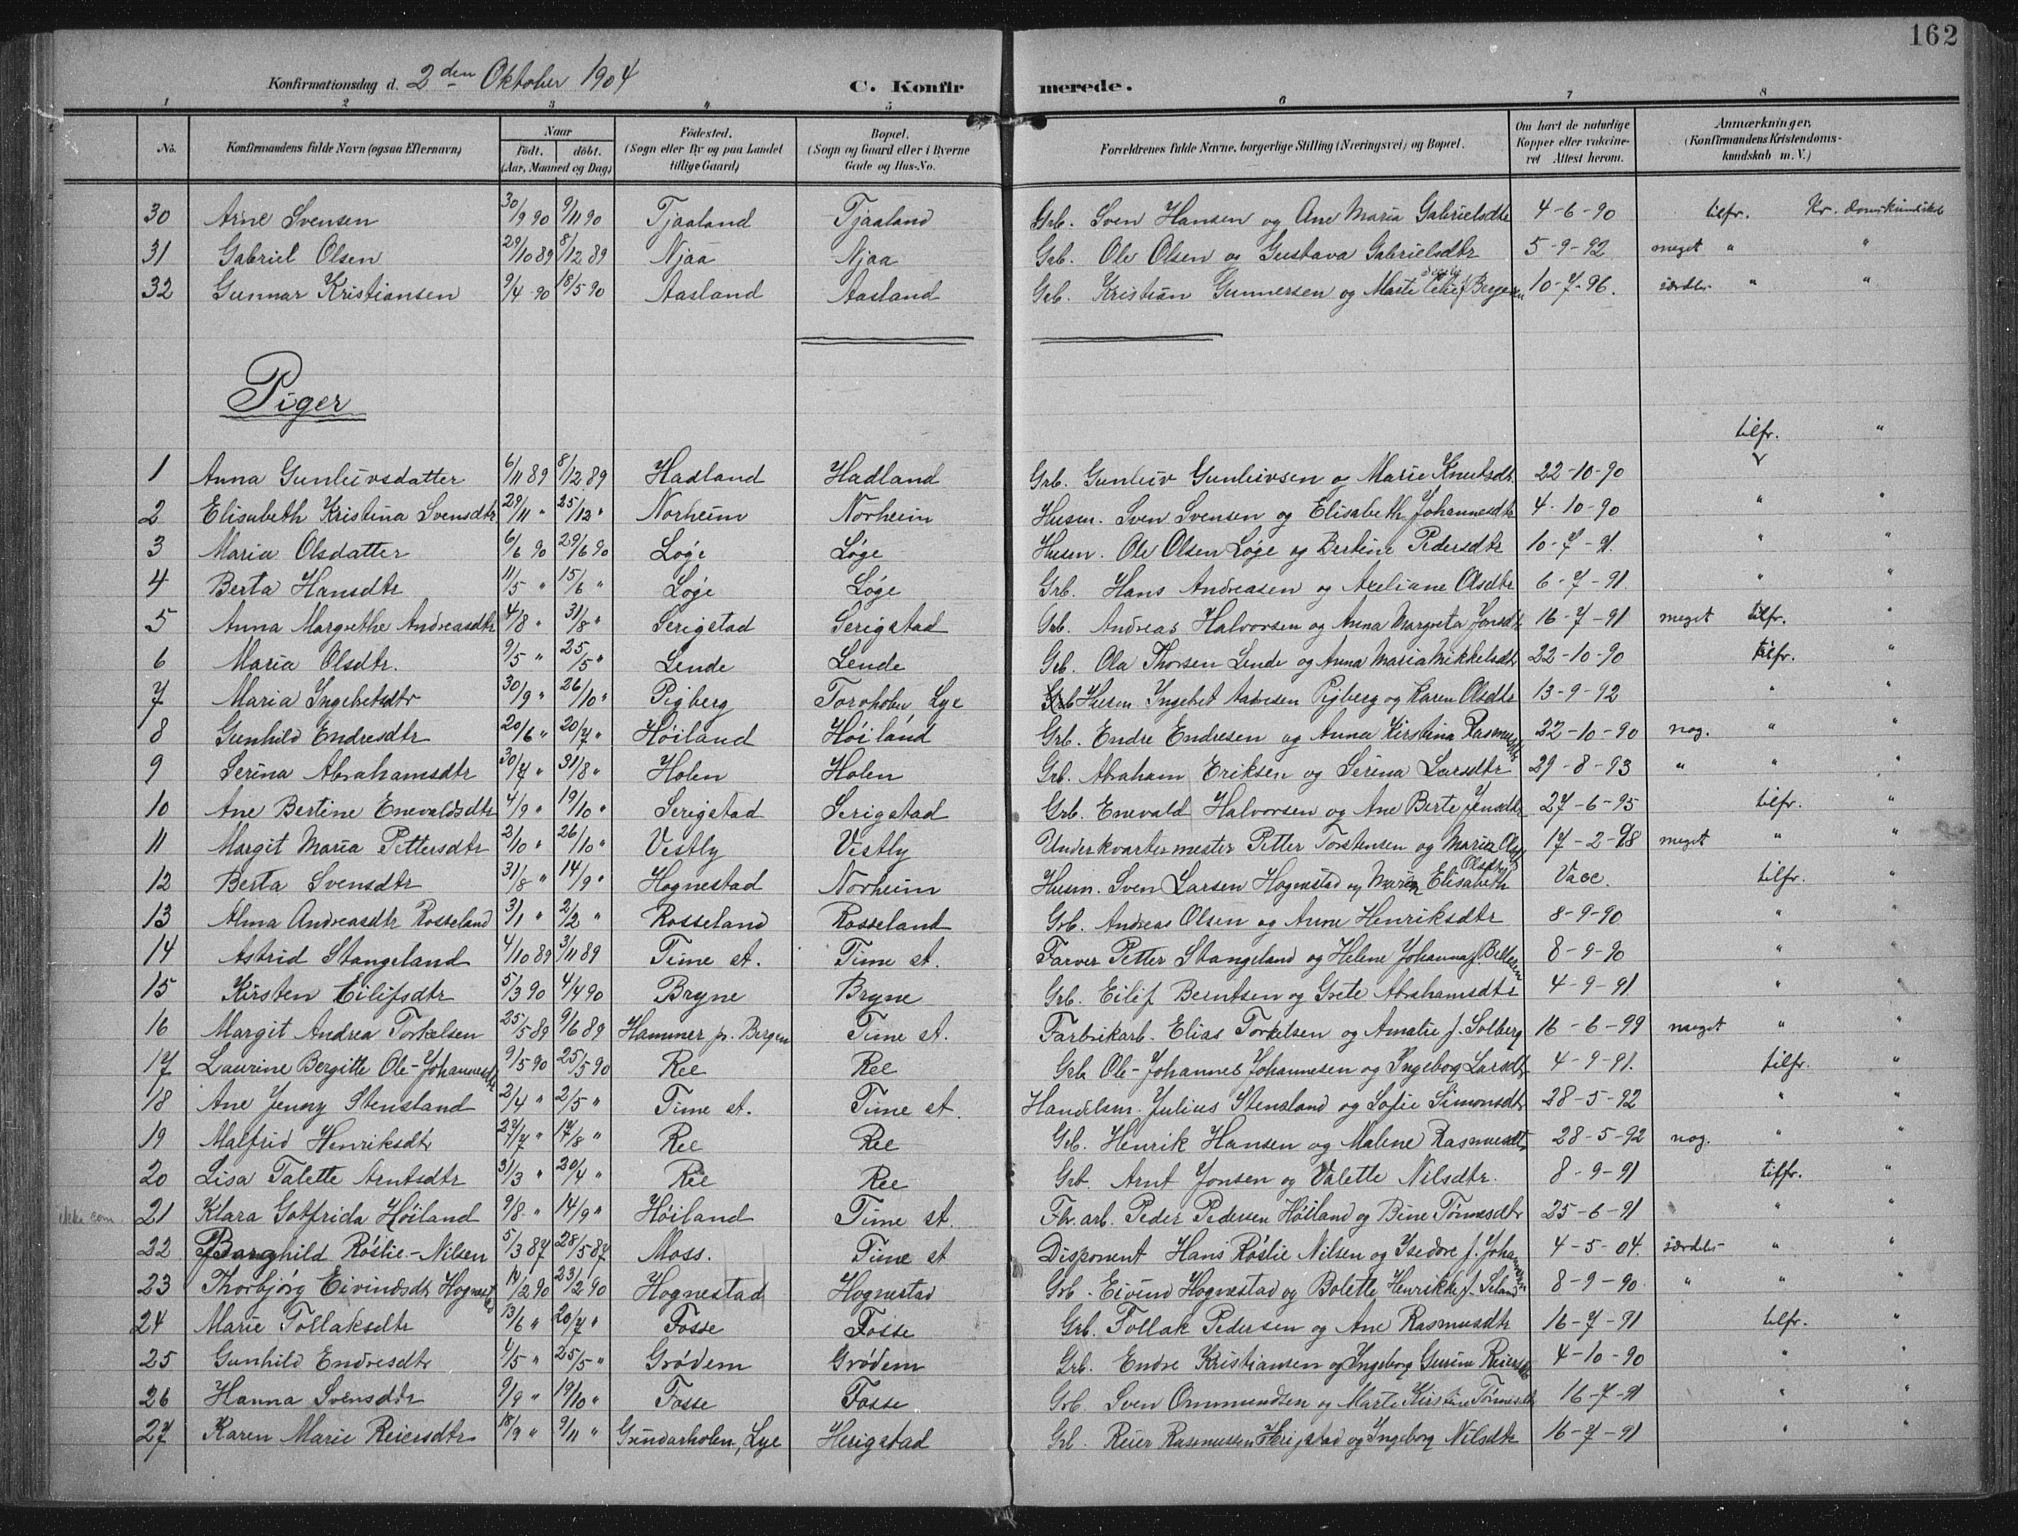 162
Konfirmationsdag d. 2den Oktober 1904 C. Konfirmerede.
1 2 3 4 5 6 7 8
No. Konfirmandens fulde Navn (ogsaa Efternavn) Naar födt. döbt. (Aar, Maaned og Dag) Födested. (Sogn eller By og paa Landet tillige Gaard) Bopæl. (Sogn og Gaard eller i Byerne Gade og Hus-No. Forældrenes fulde Navne, borgerlige Stilling (Næringsvei) og Bopæl. Om havt de naturlige Kopper eller vakcineret Attest herom. Anmærkninger, (Konfirmandens Kristendomskundskab m. V.)
30 Arne Svensen 30/9 90 9/11 90 Tjaaland Tjaaland Grb. Sven Hansen og Ane Maria Gabrielsdtr 4-6-90 tilfr. Kr. domskundskab
31 Gabriel Olsen 29/10 89 8/12 89 Njaa Njaa Grb. Ole Olsen og Gustava Gabrielsdtr 5-9-92 meget " "
32 Gunnar Kristiansen 9/4 90 18/5 90 Aasland Aasland Grb. Kristian Gunnersen og Marte 10-7-96. særdls " "
Piger
tilfr. "
1 Anna Gunleivsdatter 6/11 89 8/12 89 Hadland Hadland Grb. Gunleiv Gunleivsen o Marie Knutsdtr. 22-10-90
2 Elisabeth Kristina Svensdtr 29/11 " 25/12 " Norheim Norheim Husm. Sven Svensen og Elisabeth Johannesdtr 4-10-90 " "
3 Maria Olsdatter 6/6 90 29/6 90 Løge Løge Husm. Ole Olsen Løge og Bertine Pedersdtr 10-7-91. " "
4 Berta Hansdtr 11/5 " 15/6 " Løge Løge Grb. Hans Andreasen og Axeliane Olsdtr 6-7-91. " "
5 Anna Margrethe Andreasdtr 4/8 " 31/8 " Serigstad Serigstad Grb. Andreas Halvorsen og Anna Margreta Jonsdtr 16-7-91 meget tilfr. "
6 Maria Olsdtr. 9/5 " 25/5 " Lende Lende Grb. Ola Thorsen Lende og Anna Maria Mikkelsdtr 22-10-90 tilfr. "
7 Maria Ingebretsdtr 30/9 " 26/10 " Pigberg Lye Husm Ingebret Pigberg og Karen Olsdtr 13-9-92 " "
8 Gunhild Endresdtr 20/6 " 20/7 " Høiland Høiland Grb. Endre Endresen og Anna Kirstina Rasmusdtr 22-10-90 nog. " "
9 Serina Abrahamsdtr 30/7 " 31/8 " Holen Holen Grb. Abraham Eriksen og Serina Larsdtr 29-8-93 " " "
10 Ane Bertine Enevaldsdtr 4/9 " 19/10 " Serigstad Serigstad Grb. Enevald Halvorsen og Ane Berte Jensdtr 27-6-95 tilfr. "
11 Margit Maria Pettersdtr 2/10 " 26/10 " Vestly Vestly Underkvartermester Petter Torstensen og Maria Olsdtr 17-2-98 meget " "
12 Berta Svensdtr 31/8 " 14/9 " Hognestad Norheim Husm. Sven Larsen Hognestad og Maren Elisabeth Olsdtr Vacc. tilfr. "
13 Alma Andreasdtr Rosseland 3/1 " 2/2 " Rosseland Rosseland Grb. Andreas Olsen og Anne Henriksdtr 8-9-90 " "
14 Astrid Stangeland 4/10 89 3/11 89 Time st. Time st. Farver Petter Stangeland og Helene Johanna f. 8-9-90 " "
15 Kirsten Eilifsdtr 5/3 90 4/4 90 Bryne Bryne Grb. Eilif Berntsen og Grete Abrahamsdtr 4-9-91 " "
16 Margit Andrea Torkelsen 25/5 89 9/6 89 Hammer pr. Bergen Time st. Fabrikarb. Elias Torkelsen og Amalie f. Solberg 16-6-99 meget " "
17 Laurine Bergitte Ole-Johannesdtr 9/5 90 25/5 90 Ree Ree Grb. Ole-Johannes Johannesen og Ingeborg Larsdtr 4-9-91. tilfr. "
18 Ane Jenny Stensland 2/4 " 2/5 " Time st. Time st. Handelsm. Julius Stensland og Sofie Simonsdtr 28-5-92 " "
19 Malfrid Henriksdtr 27/7 " 17/8 " Ree Ree Grb. Henrik Hansen og Malene Rasmusdtr 28-5-92 nog. " "
20 Lisa Talette Arntsdtr 31/3 " 20/4 " Ree Ree Grb. Arnt Jonsen og Valette Nilsdtr. 8-9-91 tilfr. "
ikke com. 21 Klara Gotfrida Høiland 9/8 " 14/9 " Høiland Time st. Fbr. arb. Peder Pedersen Høiland og Bine Tønnesdtr 25-6-91 " "
22 Borghild Røslie-Nilsen 5/3 87 28/5 87 Moss. Time st Disponent Hans Røslie Nilsen og Isedore f. Johannesen 4-5-04. særdls " "
23 Thorbjørg Eivindsdtr Hognestad 14/2 90 23/2 90 Hognestad Hognestad Grb. Eivind Hognestad og Bolette Henrikke f. Seland 8-9-90 " " "
24 Marie Tollaksdtr 13/6 " 20/7 " Fosse Fosse Grb. Tollak Pedersen og Ane Rasmusdtr 16-7-91 tilfr. "
25 Gunhild Endresdtr 4/5 " 25/5 " Grødem Grødem Grb. Endre Kristiansen og Ingeborg Gurine Reiersdtr 4-10-90 " "
26 Hanna Svensdtr 9/9 " 19/10 " Fosse Fosse Grb. Sven Ommundsen og Marte Kirstine Tønnesdtr 16-7-91 " "
27 Karen Marie Reiersdtr 18/9 " 9/11 " Gundarholen, Lye Herigstad Grb. Reier Rasmussen Herigstad og Ingeborg Nilsdtr 16-7-91 " "